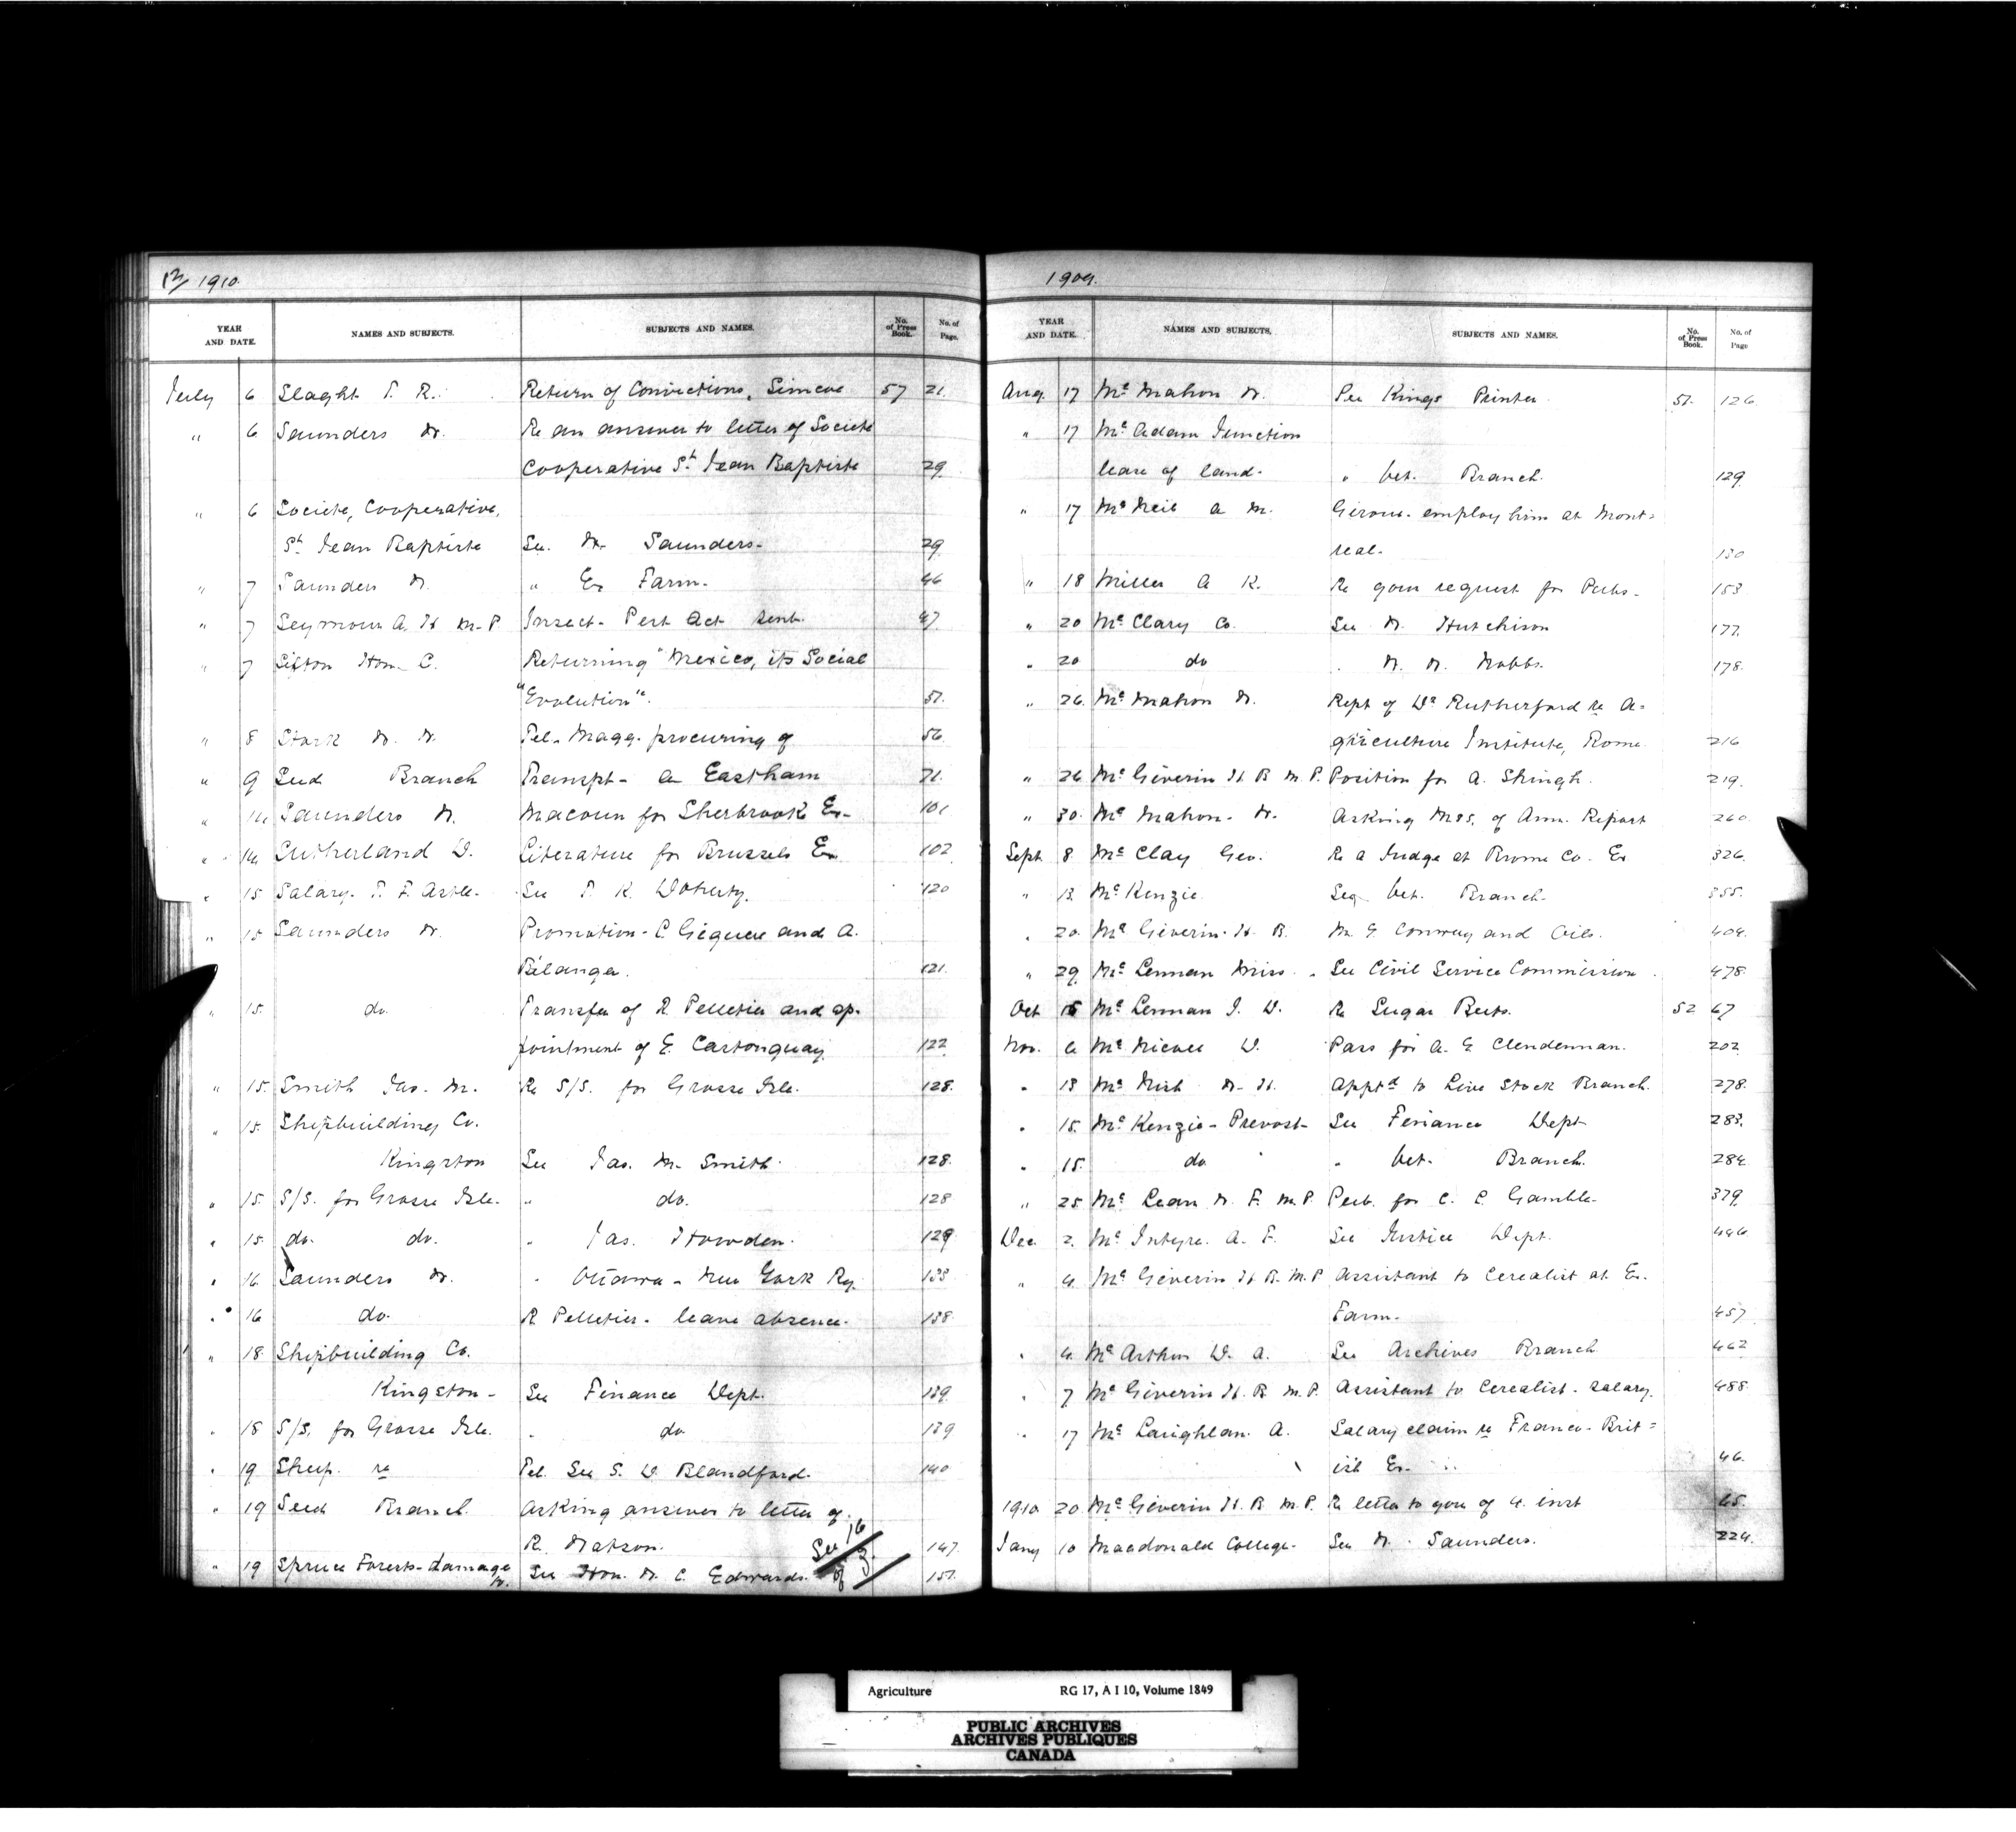 1910.
YEAR AND DATE. NAMES AND SUBJECTS. SUBJECTS AND NAMES. No. of Press Book. No. of Page.
July 6 Slaght T. R. Return of Convictions, Simcoe 57 21.
" 6 Saunders Dr. Re an answer to letter of Societe
Cooperative St Jean Baptiste 29
" 6 Societe, Cooperative,
St Jean Baptiste See Dr. Saunders. 29
" 7 Saunders Dr. " Ex Farm. 46
" 7 Seymour A. H M.P Insect-Pest Act sent. 47
" 7 Sifton Hon. C. Returning "Mexico, its Social
"Evolution". 51.
" 8 Stark Tel. Magg. procuring of 56
" 9 Seed Branch Transpt- Eastham 71.
" 14 Saunders Dr. Macoun for Sherbrook Ex- 101
" 14 Sutherland D. Literature for Brussels Ex 102
" 15 Salary. T. F. Astle. See T. K. Doherty. 120
" 15 Saunders Dr. Promotion- C. Giguere and A.
Belanger. 121.
" 15. do. Transfer of R Pelletier and ap-
pointment of E. Castonguay 122
" 15. Smith Jas. M. Re S/S. for Grosse Isle. 128.
" 15. Shipbuilding Co.
Kingston See Jas. M. Smith. 128.
" 15. S/S. for Grosse Isle. " do. 128
" 15. do. do. " Jas. Howden. 129
" 16 Saunders Dr. " Ottawa - New York Ry. 133
" 16 do. R Pelletier. leave absence. 138.
" 18. Shipbuilding Co.
Kingston- See Finance Dept. 139
" 18 S/S. for Grosse Isle. " do 139
" 19 Sheep. re Tel. See S. D. Blandford. 140
" 19 Seed Branch. Asking answer to letter of
R. Watson. 147.
" 19 Spruce Forests-damage to. See Hon. W. C. Edwards. 151.
See 16 of 3.
1909.
YEAR AND DATE. NAMES AND SUBJECTS. SUBJECTS AND NAMES. No. of Press Book. No. of Page
Aug. 17 Mc Mahon See Kings Printer 51. 126.
" 17 Mc Adam Junction
lease of land. " Vet. Branch. 129.
" 17 Mc Neil A M. Giroux. employ him at Mont=
real. 130
" 18 Miller A K. Re your request for Pubs. 153
" 20 Mc Clary Co. See Hutchison 177.
" 20 do " Nobbs. 178.
" 26. Mc Mahon Rept of Dr Rutherford re A=
griculture Institute, Rome 216
" 26 Mc Giverin H B M P. Position for A. Shingh. 219.
" 30. Mc Mahon. Asking Mss. of Ann. Report 260
Sept. 8. Mc Clay Geo. Re a Judge at Brome Co. Ex 326.
" 13. Mc Kenzie See Vet. Branch. 355.
" 20. Mc Giverin. H. B. M. G. Conway and Oils. 404.
" 29. Mc Lennan Miss See Civil Service Commission 478.
Oct Mc Lennan J. D. Re Sugar Beets. 52 67
Nov. 6 Mc Nicoll D. Pass for A. E Clendennan. 202
" 13 Mc Nish Apptd to Live Stock Branch. 278.
" 15. Mc Kenzie - Prevost- See Finance Dept 283.
" 15. do. " Vet. Branch. 284
" 25. Mc Lean F. M.P. Pub. for C. C. Gamble. 379
Dec 2. Mc Intyre. A. F. See Justice Dept. 446
" 4. Mc Giverin H. B. M.P Assistant to Cerealist at Ex.
Farm. 457
" 4. Mc Arthur D. A. See Archives Branch 462
" 7 Mc Giverin H. B M. P. Assistant to Cerealist. salary. 488.
" 17 Mc Laughlan. A. Salary claim re Franco-Brit=
ish Ex. 46.
1910 20. Mc Giverin H. B M. P. Re letter to you of 4. inst 65.
Jany 10 Macdonald College. See Saunders. 224.
Agriculture RG 17, A I 10, Volume 1849
PUBLIC ARCHIVES
ARCHIVES PUBLIQUES
CANADA